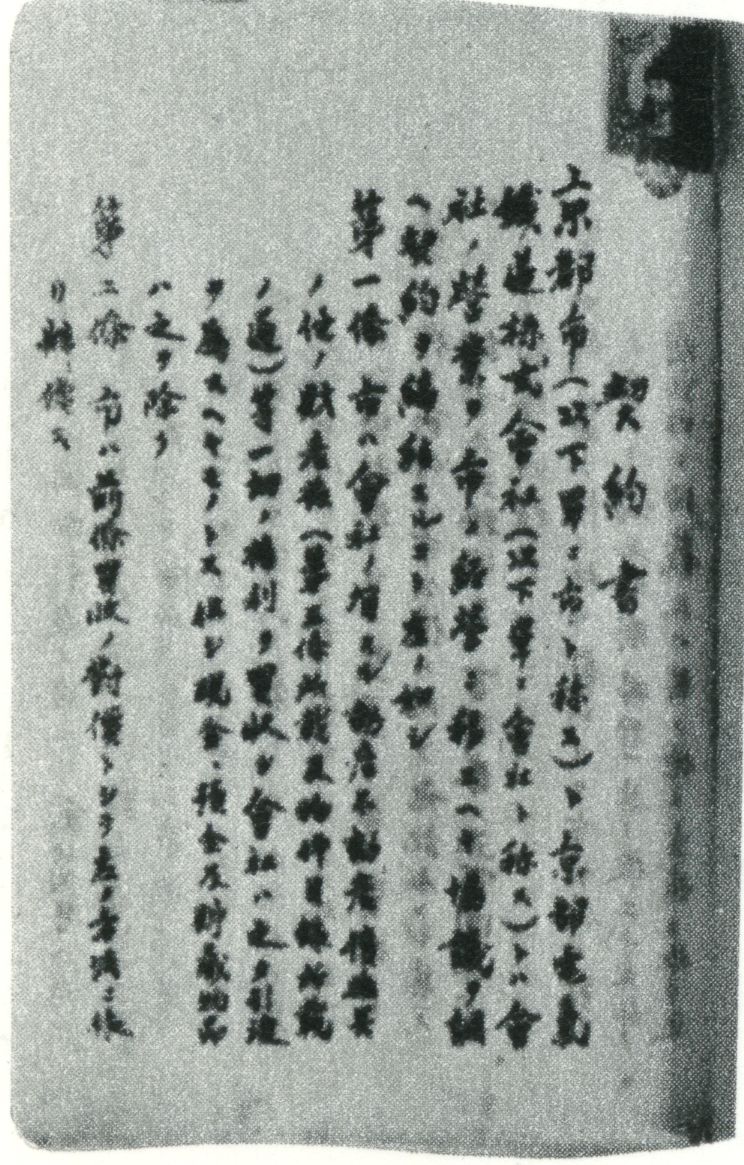 契約書
京都市(以下單ニ市ト称ス)ト京都電氣
鐵道株式會社(以下單ニ會社ト称ス)トハ會
社ノ營業ヲ市ノ經營ニ移スヘキ協議ヲ調
ヘ契約ヲ締結スルコト左ノ如シ
第一條 市ハ會社ノ有スル動産不動産債權其
ノ他ノ財産權(第三條所載及帖附目録所載
ノ通)等一切ノ權利ヲ買收シ會社ハ之カ引渡
ヲ為スヘキモノトス但シ現金、預金及貯蔵物品
ハ之ヲ除ク
第二條 市ハ前條買收ノ對價トシテ左ノ各項ニ依
リ補償ス